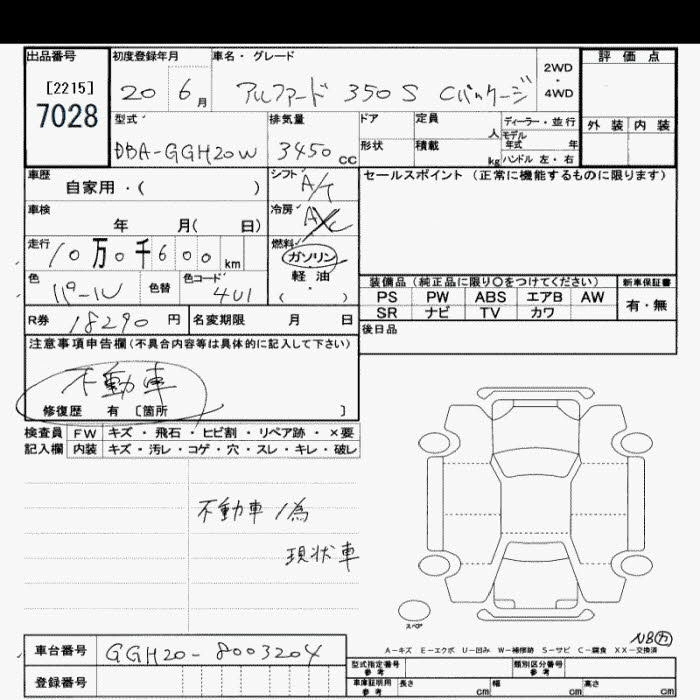 出品番号 初度登録年月 車名・グレード 評価点
[2215] 7028 20 6月 アルファード 350S Cパッケージ 2WD・4WD
外装 内装
型式 排気量 ドア 定員 人 ディーラー・並行
DBA-GGH20W 3450cc 形状 積載 kg モデル年式 年 ハンドル 左・右
車歴 自家用・( ) シフト A/T セールスポイント(正常に機能するものに限ります)
車検 年 月( 日) 冷房 A/C
走行 10万0千600km 燃料 ガソリン
軽油
・
( )
色 パール 色替 色コード 4U1 装備品(純正品に限り○をつけてください) 新車保証書
PS PW ABS エアB AW 有・無
SR ナビ TV カワ
R券 18290円 名変期限 月 日 後日品
注意事項申告欄(不具合内容等は具体的に記入して下さい)
不動車
修復歴 有 [箇所 ]
検査員 FW キズ・飛石・ヒビ割・リペア跡・×要
記入欄 内装 キズ・汚レ・コゲ・穴・スレ・キレ・破レ
不動車ノ為
現状車
スペア
NB万
A-キズ E-エクボ U-凹み W-補修跡 S-サビ C-腐食 XX-交換済
車台番号 GGH20-8003204 型式指定番号 参考 類別区分番号 参考
登録番号 車庫証明用 参考 長さ cm 幅 cm 高さ cm